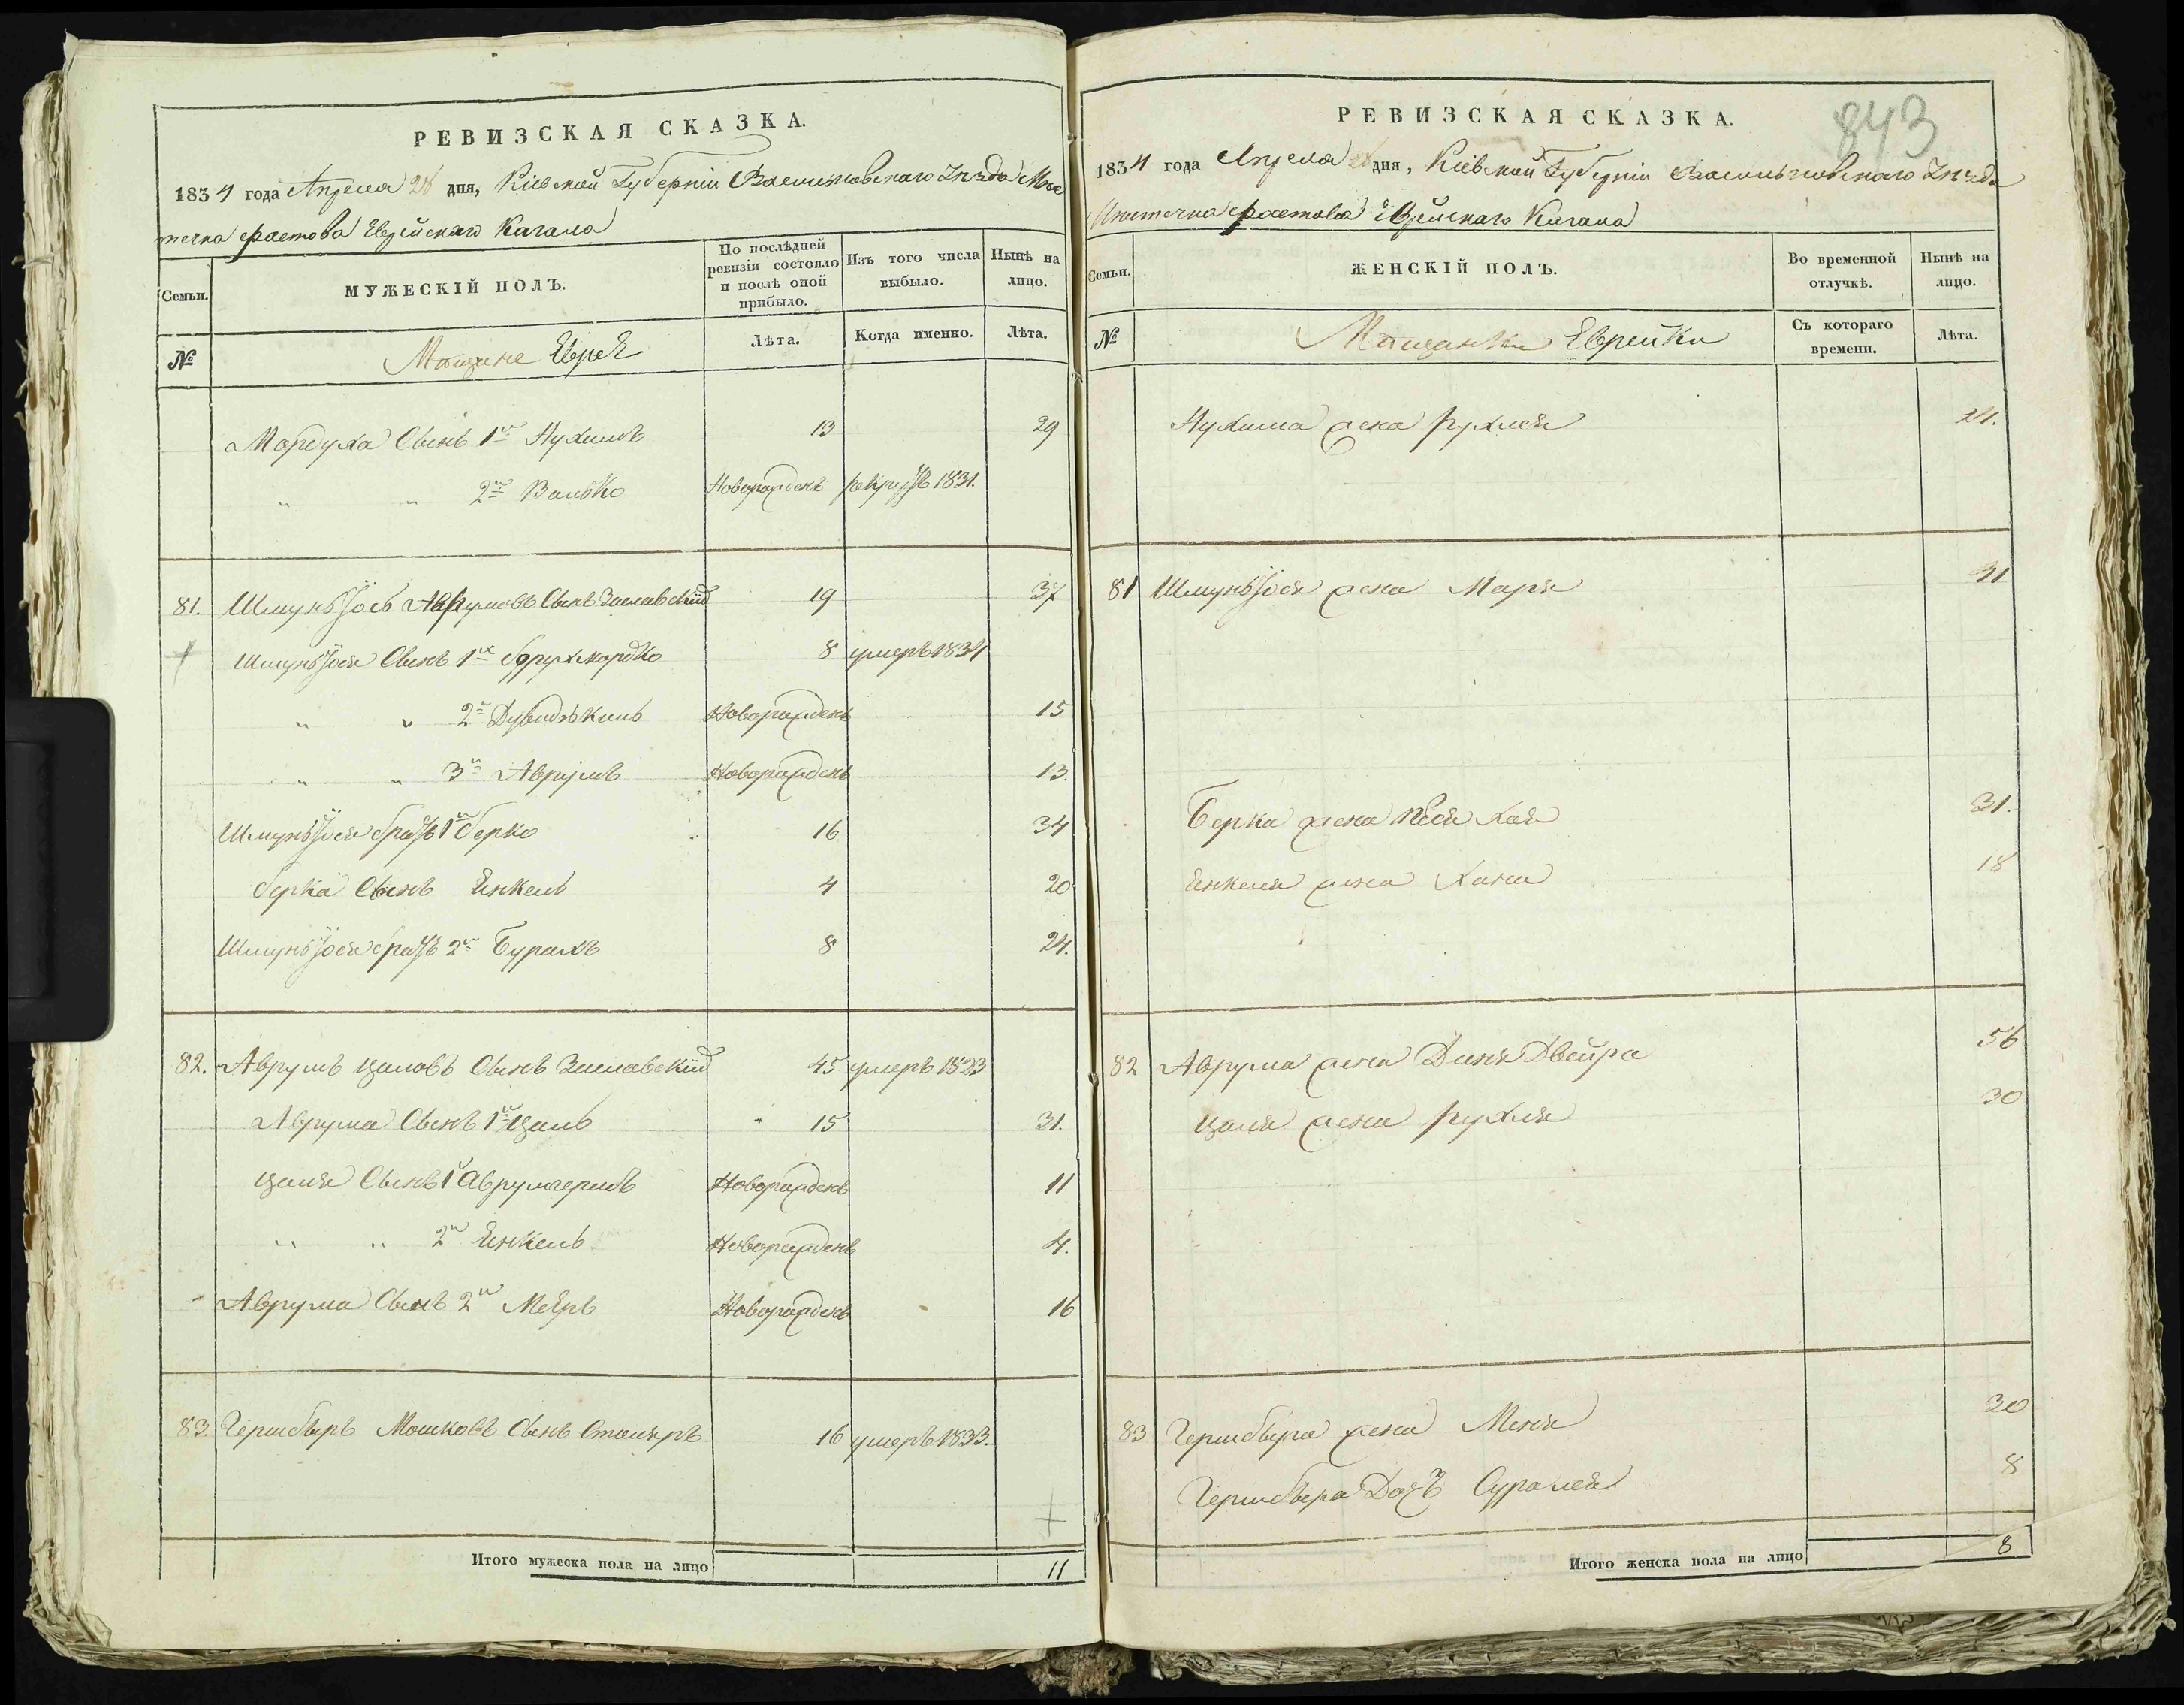 РЕВИЗСКАЯ СКАЗКА.
1834 года Апреля 28 дня, Кіевской Губерніи Васильковскаго Уезда Мѣс
течка Фастова Еврейскаго Кагала
Семьи.
МУЖЕСКІЙ ПОЛЪ.
По послѣдней ревизіи состояло и послѣ оной прибыло.
Изъ того числа выбыло.
Нынѣ на лицо.
№
Мещане Евреи
Лѣта.
Когда именно.
Лѣта.
Мордуха Сынъ 1й Нухимъ 13 29
" " 2й Волько Новорожденъ рекрутъ 1831.
81. Шмуньйось Аврумовъ Сынъ Заславскій 19 37
Шмуньйося Сынъ 1й Борухмордко 8 умеръ 1834
" " 2й Дувидъ Новорожденъ 15
" " 3й Аврумъ Новорожденъ 13.
Шмуньйося братъ 1й Берко 16 34
Берка Сынъ Янкель 4 20
Шмуньйося братъ 2й Бурахъ 8 24.
82. Аврумъ Цаловъ Сынъ Заславскій 45 умеръ 1823
Аврума Сынъ 1й Цаль " 15 31.
Цаля Сынъ 1й Аврумгершъ Новорожденъ 11
" " 2й Янкель Новорожденъ 4.
Аврума Сынъ 2й Мееръ Новорожденъ 16
83. Гершберъ Мошковъ Сынъ Столяръ 16 умеръ 1833.
Итого мужеска пола на лицо 11
843
РЕВИЗСКАЯ СКАЗКА.
1834 года Апреля 28 дня, Кіевской Губерніи Васильковскаго Уезда
Мистечка Фастова Еврейскаго Кагала
Семьи.
ЖЕНСКІЙ ПОЛЪ.
Во временной отлучкѣ.
Нынѣ на лицо.
№
Мещанки Еврейки
Съ котораго времени.
Лѣта.
Нухима жена Рухлея 24.
81 Шмуньйося жена Маря 31
Берка жена Песя Хая 31.
Янкеля жена Хана 18
82 Аврума жена Диня Двейра 56
Цаля жена Рухля 30
83 Гершбера жена Меня 30
Гершбера Дочь Суралея 8
Итого женска пола на лицо 8